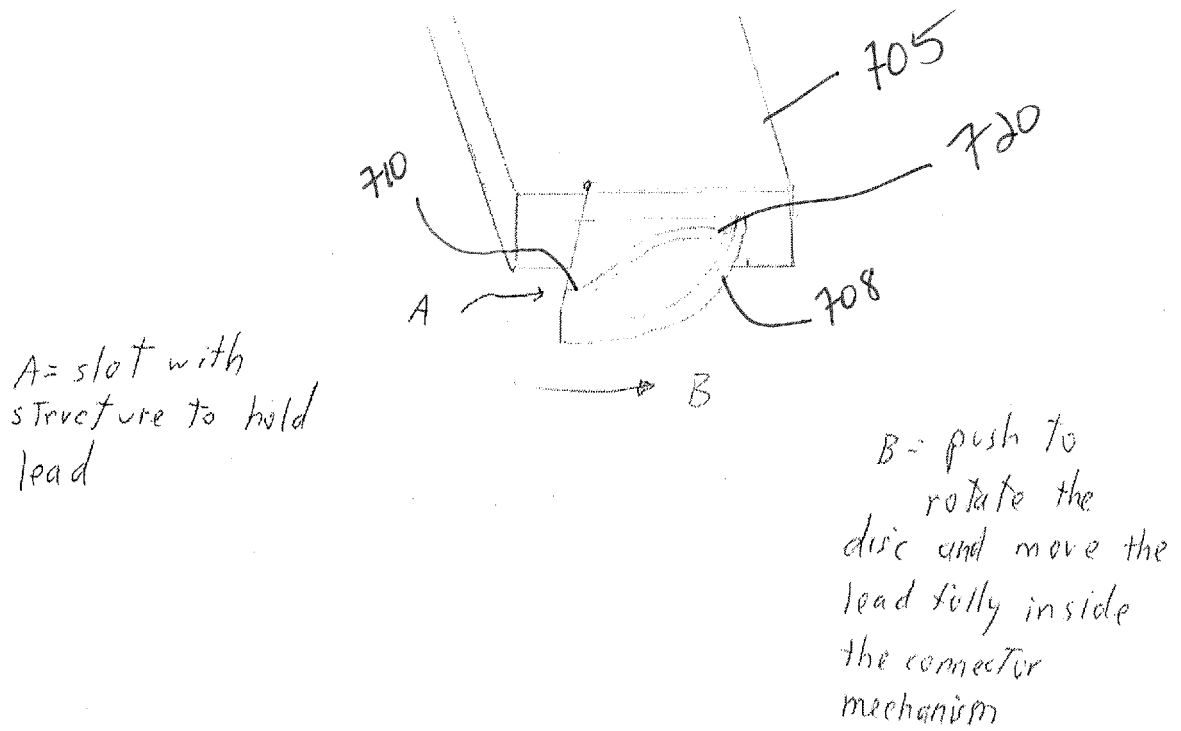 705
720
710
A
708
B
A= slot with
structure to hold
lead
B= push to
rotate the
disc and move the
lead fully inside
the connector
mechanism